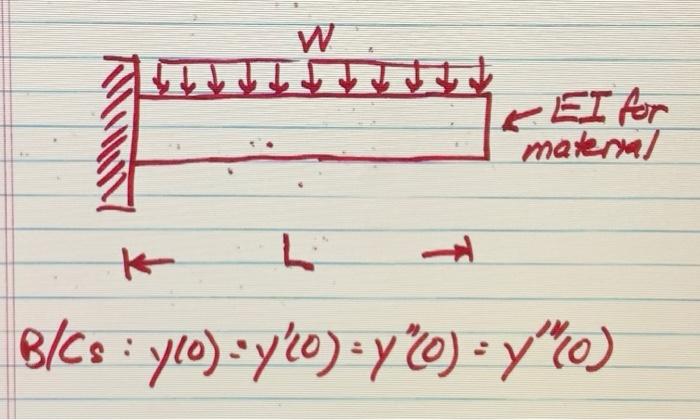 W
EI for
material
L
B/Cs : y(0) = y'(0) = y"(0) = y'"(0)